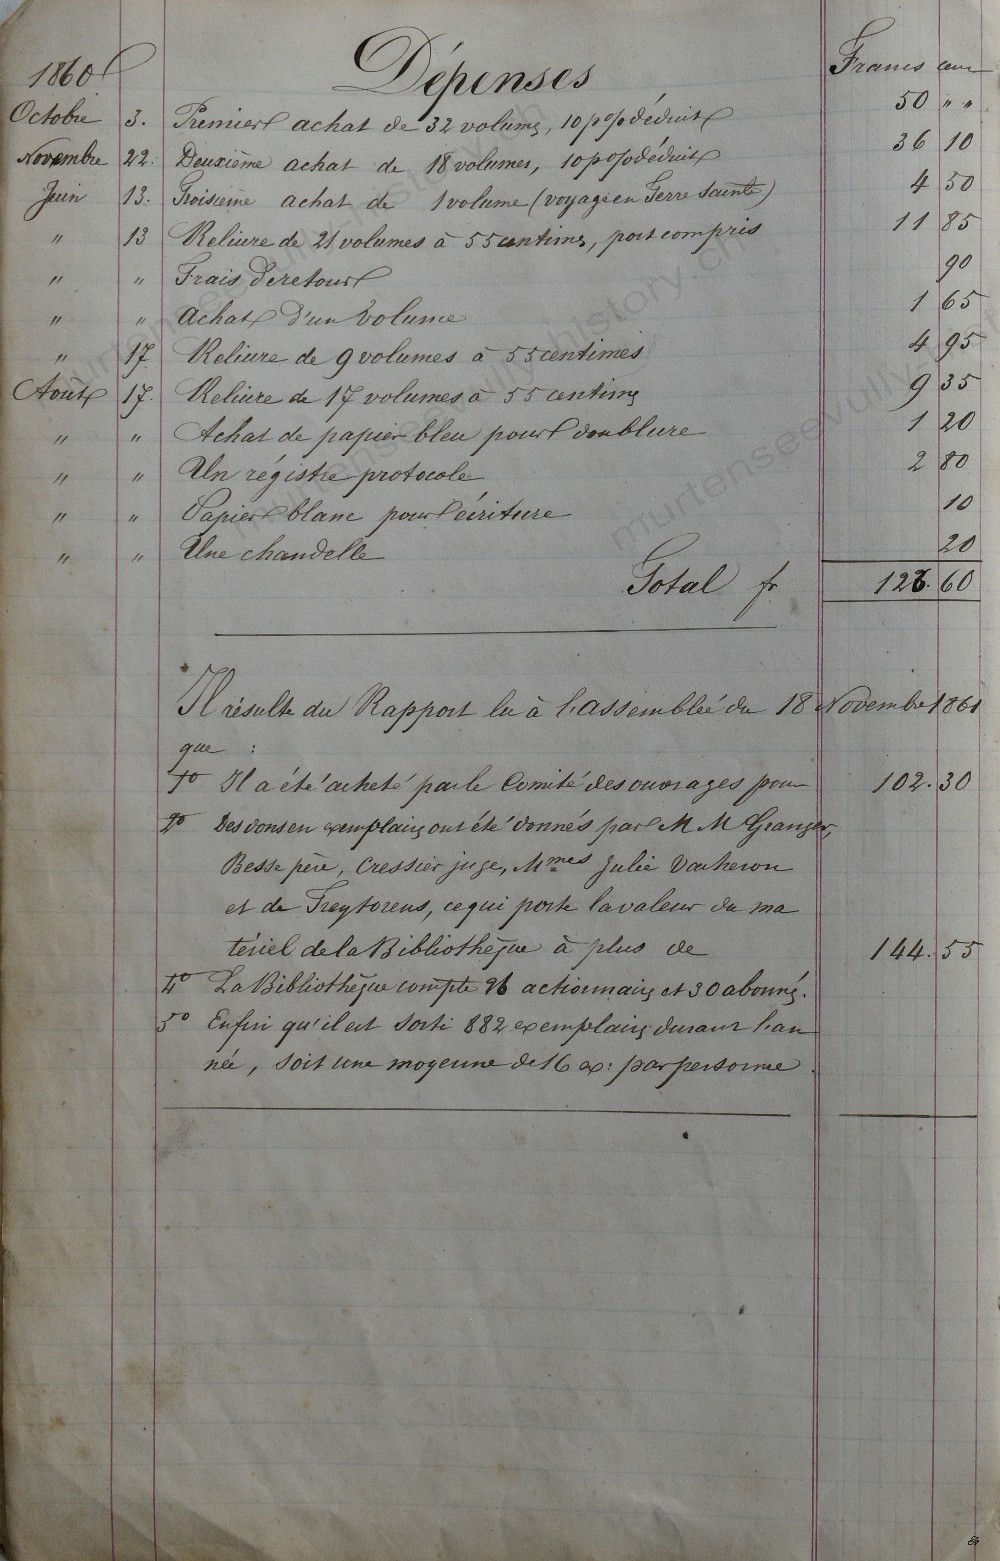 1860 Dépenses Francs cent
Octobre 3. Premier achat de 32 volumes, 10 p% déduit 50 " "
Novembre 22. Deuxième achat de 18 volumes, 10 p% déduit 36 10
Juin 13. Troisième achat de 1 volume (voyage en Terre Sainte) 4 50
" 13 Reliure de 21 volumes à 55 centimes, port compris 11 85
" " Frais de retour 90
" " Achat d'un volume 1 65
" 17 Reliure de 9 volumes à 55 centimes 4 95
Août 17. Reliure de 17 volumes à 55 centimes 9 35
" " Achat de papier bleu pour doublure 1 20
" " Un régistre protocole 2 80
" " Papier blanc pour écriture 10
" " Une chandelle 20
Total fr 123.60
Il résulte du Rapport lu à l'assemblée du 18 Novembre 1861
que :
1o Il a été acheté par le Comité des ouvrages pour 102.30
2o Des dons en exemplaires ont été donnés par M M Granger,
Besse père, Cressier juge, Mmes Julie Vacheron
et de Treytorens, ce qui porte la valeur du ma
tériel de la Bibliothèque à plus de 144.55
4o La Bibliothèque compte 26 actionnaires et 30 abonnés.
5o Enfin qu'il est sorti 882 exemplaires durant l'an
née, soit une moyenne de 16 ex: par personne.
murtenseevullyhistory.ch
murtenseevullyhistory.ch
murtenseevully